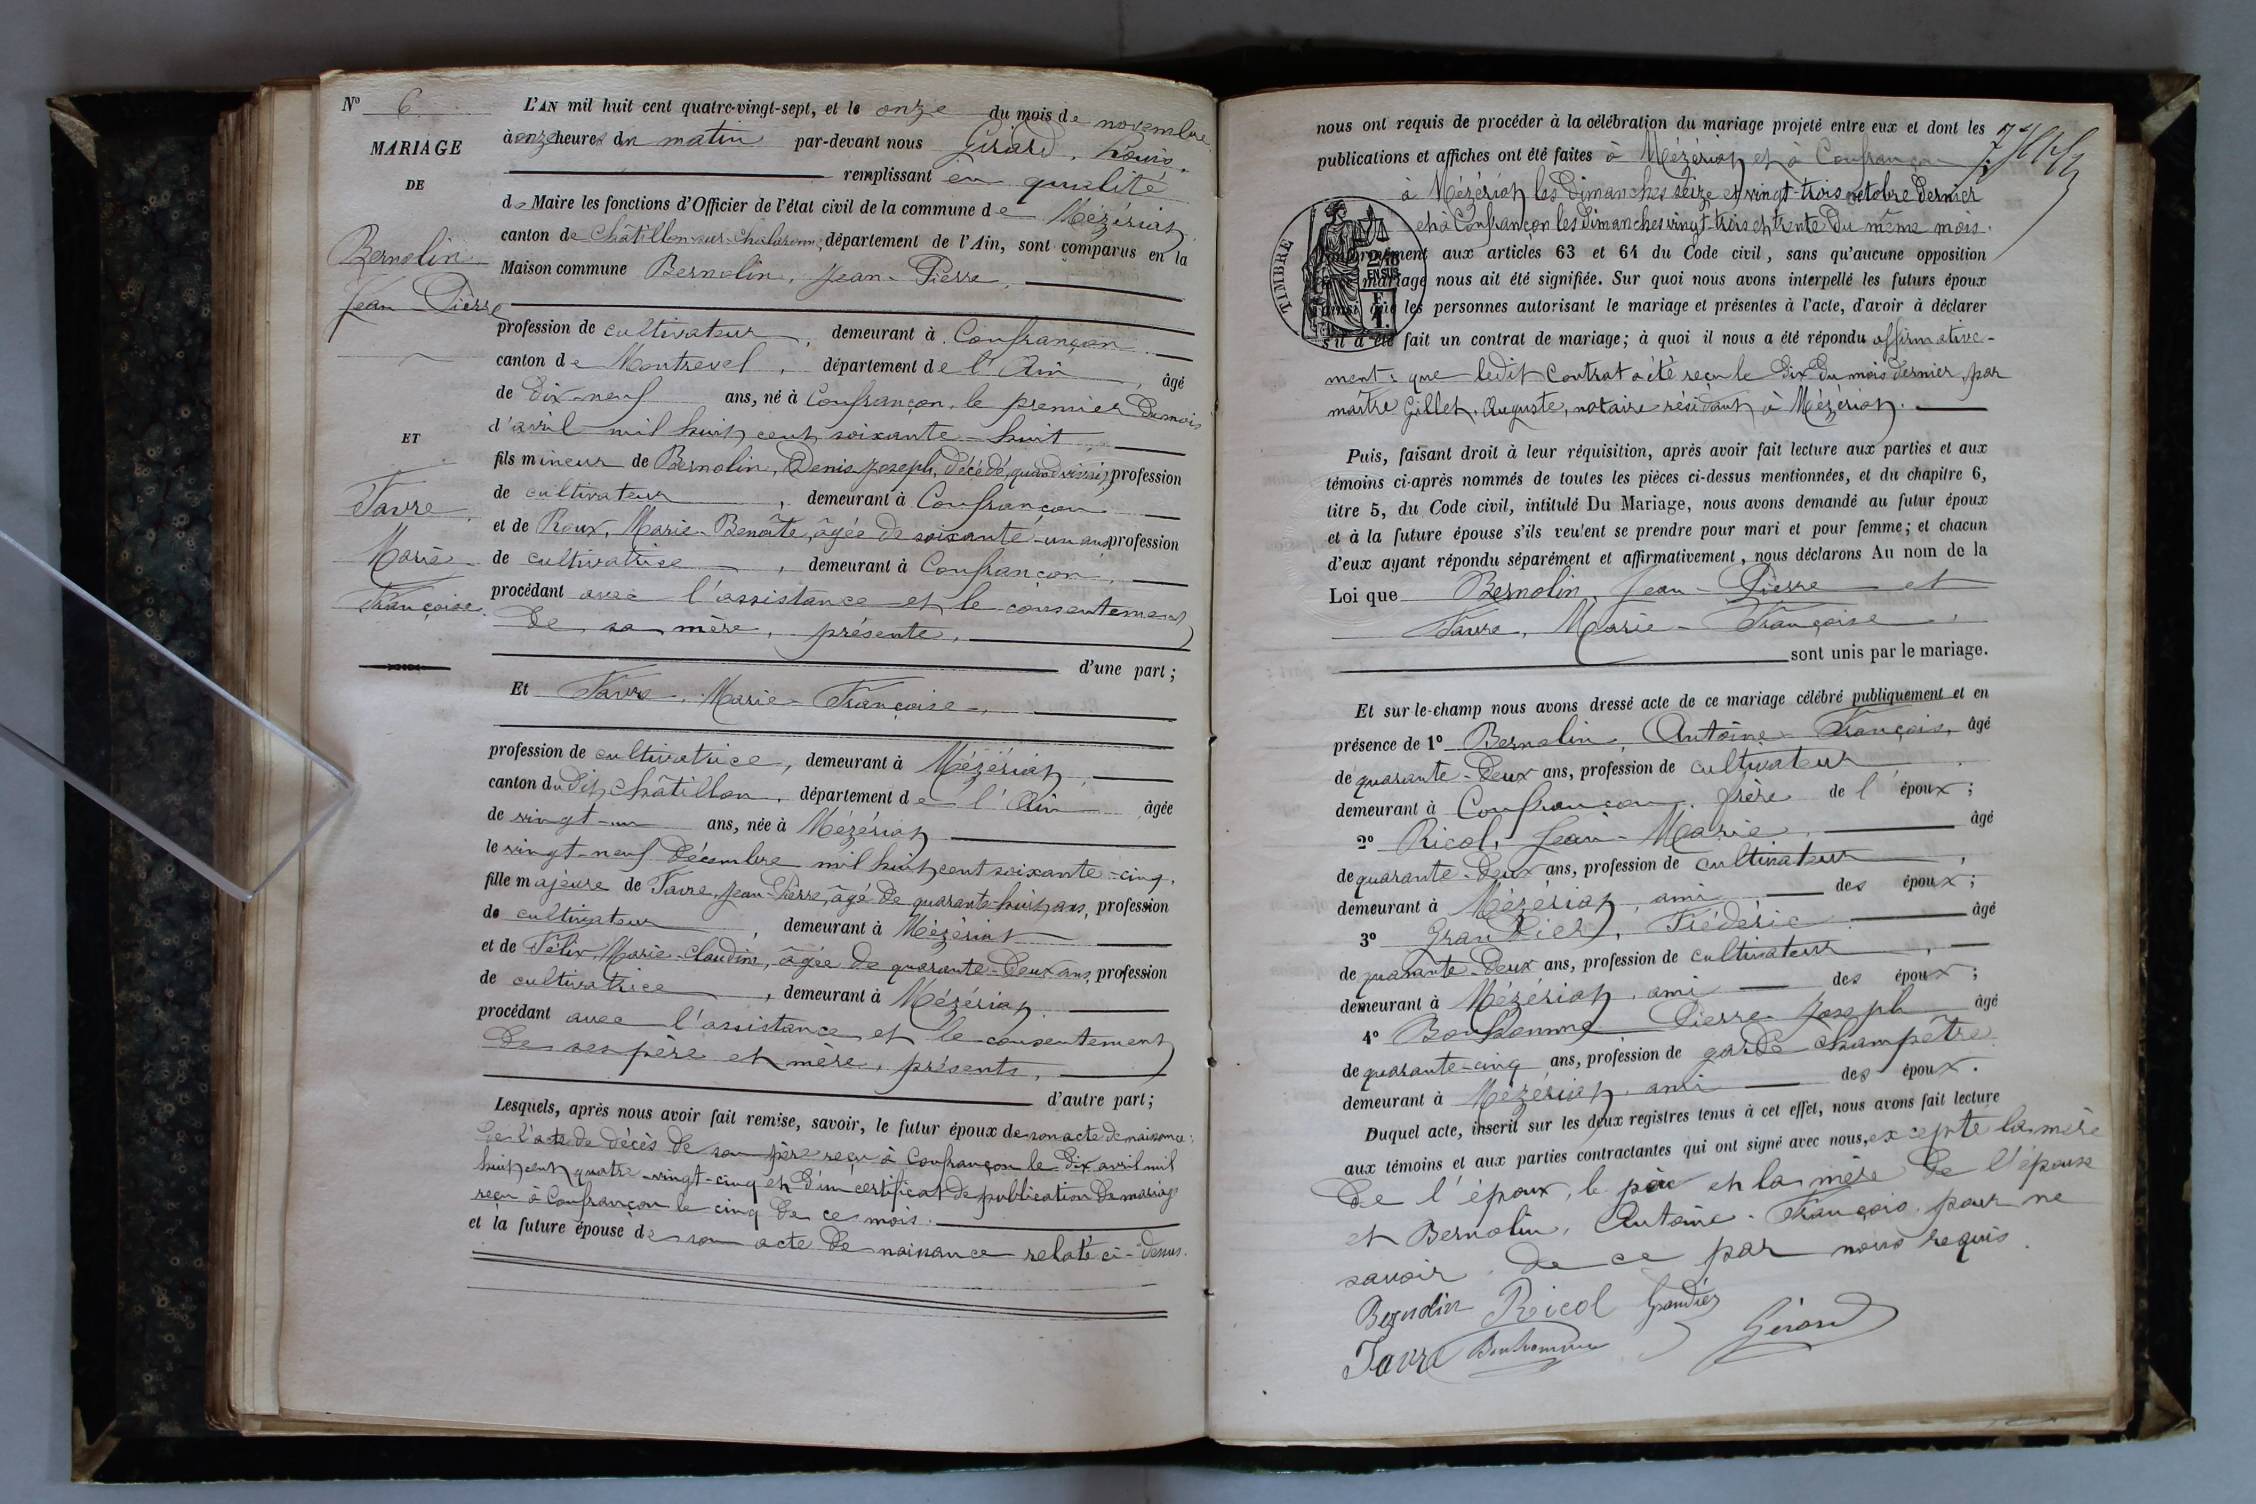 N° 6
MARIAGE
DE
Bernolin
Jean-Pierre
ET
Favre
Marie-
Françoise.
L'AN mil huit cent quatre-vingt-sept, et le onze du mois de novembre
à onze heures du matin par-devant nous Girard, Louis,
remplissant en qualité
de Maire les fonctions d'Officier de l'état civil de la commune de Mézériat
canton de Châtillon-sur-Chalaronne, département de l'Ain, sont comparus en la
Maison commune Bernolin, Jean-Pierre,
profession de cultivateur, demeurant à Confrançon
canton de Montrevel, département de l'Ain, âgé
de dix-neuf ans, né à Confrançon, le premier du mois
d'avril mil huit cent soixante-huit
fils mineur de Bernolin, Denis Joseph, décédé, quand vivait, profession
de cultivateur, demeurant à Confrançon
et de Roux, Marie-Benoîte, âgée de soixante-un ans profession
de cultivatrice, demeurant à Confrançon,
procédant avec l'assistance et le consentement
de sa mère, présente,
d'une part;
Et Favre, Marie-Françoise,
profession de cultivatrice, demeurant à Mézériat,
canton dudit Châtillon, département de l'Ain âgée
de vingt-un ans, née à Mézériat
le vingt-neuf décembre mil huit cent soixante-cinq,
fille majeure de Favre, Jean-Pierre, âgé de quarante-huit ans, profession
de cultivateur, demeurant à Mézériat
et de Félix, Marie-Claudine, âgée de quarante-deux ans, profession
de cultivatrice, demeurant à Mézériat.
procédant avec l'assistance et le consentement
de ses père et mère, présents,
d'autre part;
Lesquels, après nous avoir fait remise, savoir, le futur époux de son acte de naissance;
de l'acte de décès de son père reçu à Confrançon le dix avril mil
huit cent quatre-vingt-cinq et d'un certificat de publication de mariage
reçu à Confrançon le cinq de ce mois.
et la future épouse de son acte de naissance relaté ci-dessus.
nous ont requis de procéder à la célébration du mariage projeté entre eux et dont les
publications et affiches ont été faites à Mézériat et à Confrançon
à Mézériat les dimanches seize et vingt-trois octobre dernier
et à Confrançon les dimanches vingt-trois et trente du même mois.
TIMBRE
EN SUS
conformément aux articles 63 et 64 du Code civil, sans qu'aucune opposition
mariage nous ait été signifiée. Sur quoi nous avons interpellé les futurs époux
ainsi que les personnes autorisant le mariage et présentes à l'acte, d'avoir à déclarer
s'il a été fait un contrat de mariage; à quoi il nous a été répondu affirmative-
ment: que ledit contrat a été reçu le dix du mois dernier par
maître Gillet, Auguste, notaire résidant à Mézériat.
Puis, faisant droit à leur réquisition, après avoir fait lecture aux parties et aux
témoins ci-après nommés de toutes les pièces ci-dessus mentionnées, et du chapitre 6,
titre 5, du Code civil, intitulé Du Mariage, nous avons demandé au futur époux
et à la future épouse s'ils veulent se prendre pour mari et pour femme; et chacun
d'eux ayant répondu séparément et affirmativement, nous déclarons Au nom de la
Loi que Bernolin, Jean-Pierre et
Favre, Marie-Françoise,
sont unis par le mariage.
Et sur-le-champ nous avons dressé acte de ce mariage célébré publiquement et en
présence de 1° Bernolin, Antoine-François, âgé
de quarante-deux ans, profession de cultivateur
demeurant à Confrançon, frère de l'époux;
2° Ricol, Jean-Marie, âgé
de quarante-deux ans, profession de cultivateur,
demeurant à Mézériat, ami des époux;
3° Grandier, Frédéric âgé
de quarante-deux ans, profession de cultivateur,
demeurant à Mézériat, ami des époux;
4° Bonhomme Pierre-Joseph âgé
de quarante-cinq ans, profession de garde champêtre
demeurant à Mézériat, ami des époux.
Duquel acte, inscrit sur les deux registres tenus à cet effet, nous avons fait lecture
aux témoins et aux parties contractantes qui ont signé avec nous, excepté la mère
de l'époux, le père et la mère de l'épouse
et Bernolin, Antoine-François, pour ne
savoir, de ce par nous requis.
Bernolin Ricol Grandier
Favre Bonhomme Girard